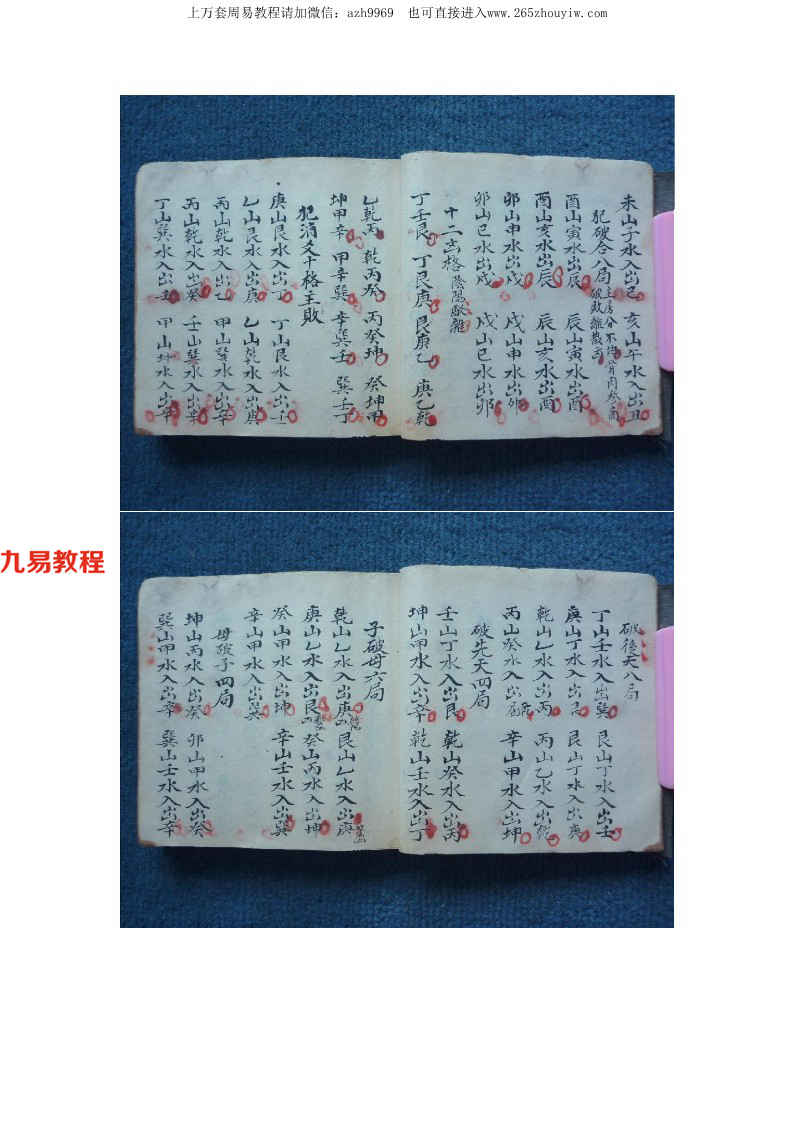 上万套周易教程请加微信：azh9969　也可直接进入www.265zhouyiw.com
未山子水入出巳　亥山午水入出丑
犯破合八局
酉山寅水出辰　辰山寅水出酉
酉山亥水出辰　辰山亥水出酉
卯山申水出戌　戌山申水出卯
卯山巳水出戌　戌山巳水出卯
十二吉格
丁壬艮　丁艮庚　艮庚乙　庚乙乾
乙乾丙　乾丙癸　丙癸坤　癸坤甲
坤甲辛　甲辛巽　辛巽壬　巽壬丁
犯消爻十格主敗
庚山艮水入出丁　丁山艮水入出壬
乙山艮水入出庚　乙山乾水入出庚
丙山乾水入出乙　甲山巽水入出辛
丙山乾水入出癸　壬山巽水入出辛
丁山巽水入出　甲山坤水入出辛
九易教程
破後天八局
丁山壬水入出巽　艮山丁水入出壬
庚山丁水入出　艮山丁水入出庚
乾山乙水入出丙　丙山乙水入出乾
丙山癸水入出　辛山甲水入出坤
破先天四局
壬山丁水入出艮　乾山癸水入出丙
坤山甲水入出辛　乾山壬水入出丁
子破母六局
乾山乙水入出庚　艮山乙水入出庚
庚山乙水入出艮　癸山丙水入出坤
癸山甲水入出坤　辛山壬水入出巽
辛山甲水入出巽
母破子四局
坤山丙水入出癸　卯山甲水入出癸
巽山甲水入出辛　巽山壬水入出辛